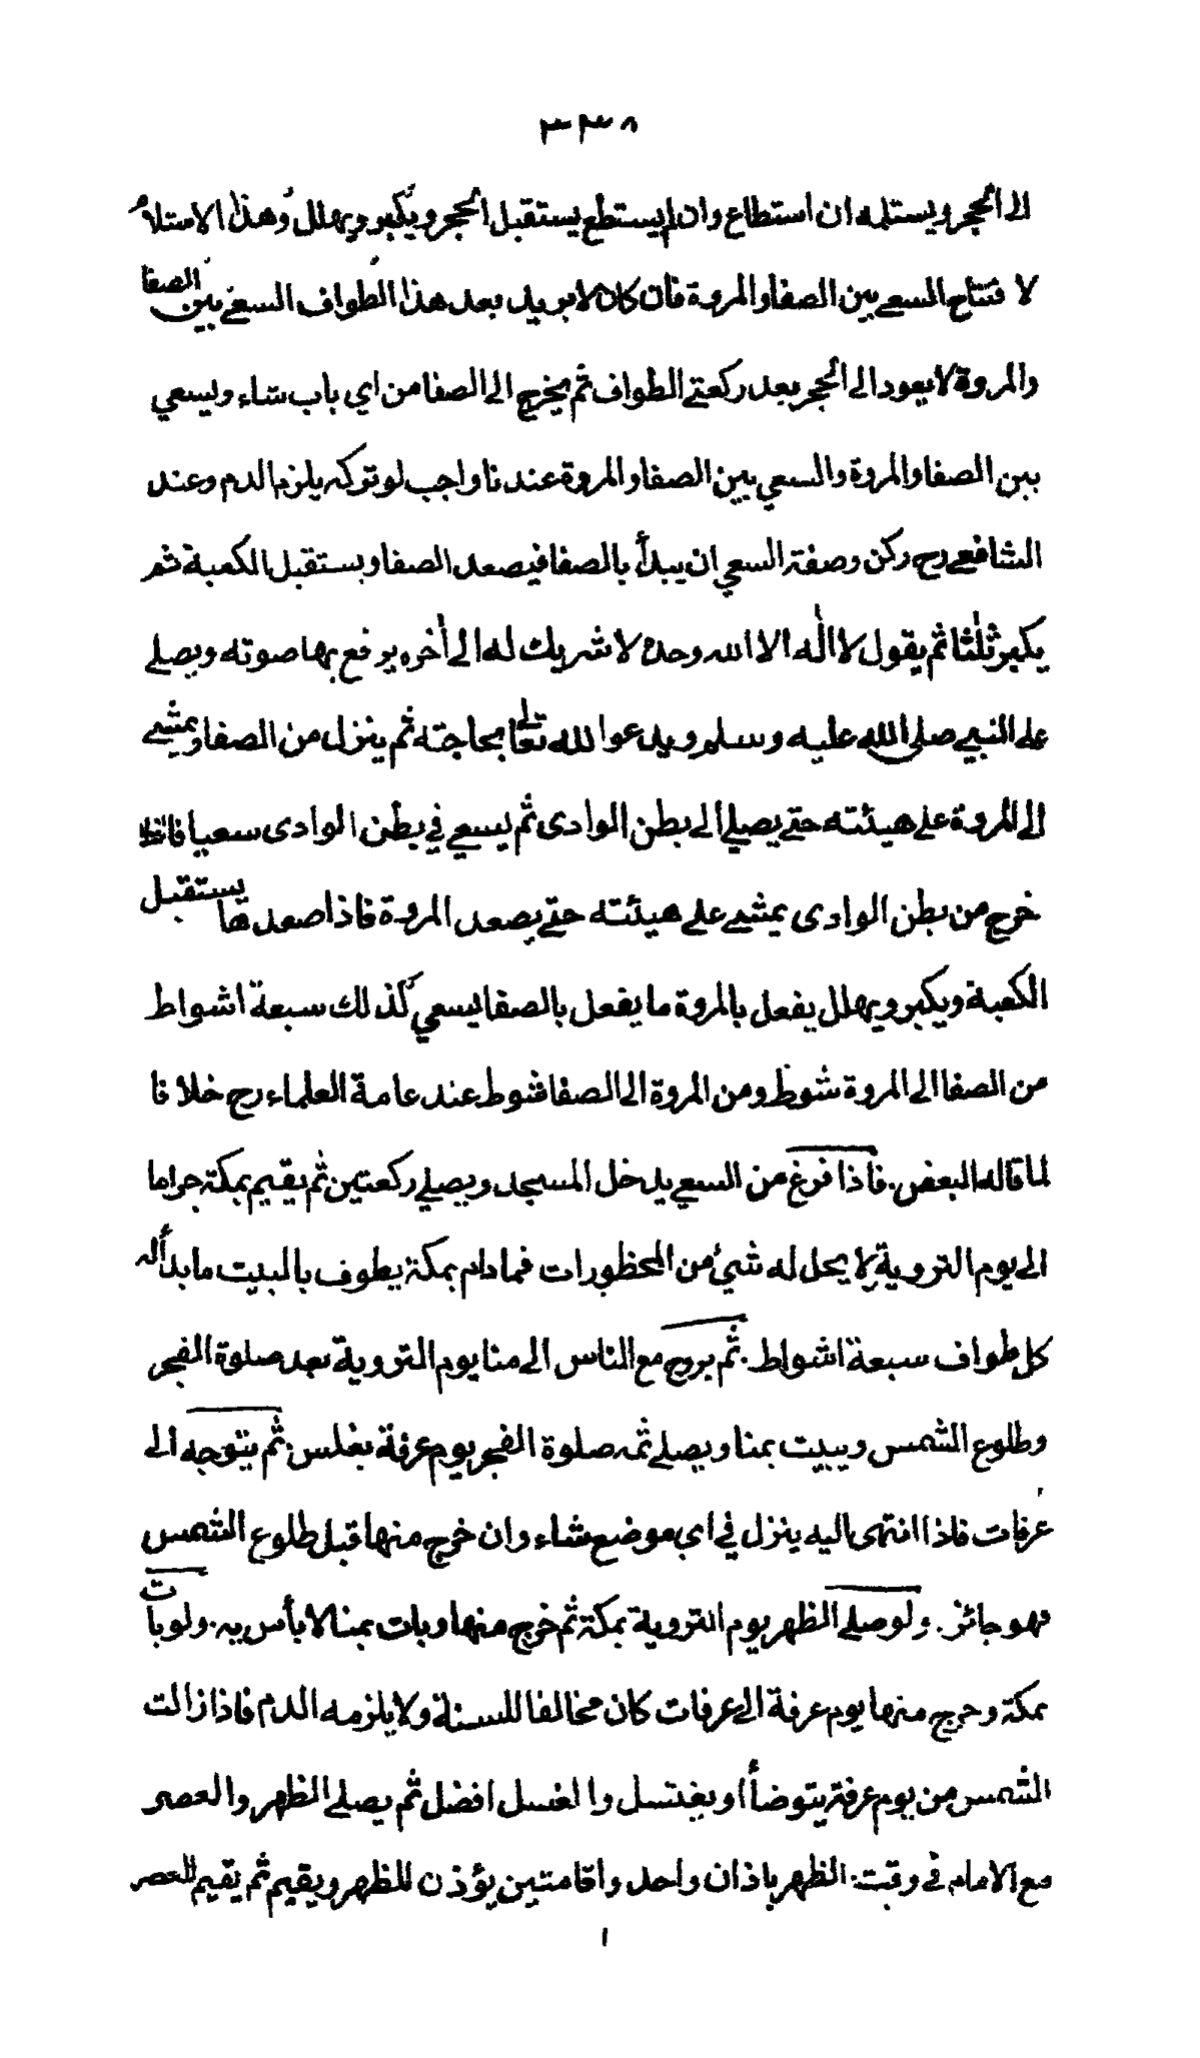 ٣٣٨
الى الحجر ويستلمه ان استطاع وان لم يستطع يستقبل الحجر ويكبر ويهلل وهذا الاستلام
لافتتاح السعي بين الصفا والمروة فان كان لا يريد بعد هذا الطواف السعي بين الصفا
والمروة لا يعود الى الحجر بعد ركعتي الطواف ثم يخرج الى الصفا من اي باب شاء ويسعي
بين الصفا والمروة والسعي بين الصفا والمروة عندنا واجب لو تركه يلزم الدم وعند
الشافعي رح ركن وصفة السعي ان يبدأ بالصفا فيصعد الصفا ويستقبل الكعبة ثم
يكبر ثلثا ثم يقول لا اله الا الله وحده لا شريك له الى أخره يرفع بها صوته ويصلي
على النبي صلى الله عليه وسلم ويدعوا لله تعالى بحاجته ثم ينزل من الصفا ويمشي
الى المروة على هيئته حتى يصلي الى بطن الوادى ثم يسعي في بطن الوادى سعيا فاذا
خرج من بطن الوادى يمشي على هيئته حتى يصعد المروة فاذا صعدها يستقبل
الكعبة ويكبر ويهلل يفعل بالمروة ما يفعل بالصفا يسعي كذلك سبعة اشواط
من الصفا الى المروة شوط ومن المروة الى الصفا شوط عند عامة العلماء رح خلافا
لما قاله البعض. فاذا فرغ من السعي يدخل المسجد ويصلي ركعتين ثم يقيم بمكة حراما
الى يوم التروية لا يحل له شيء من المحظورات فما دام بمكة يطوف بالبيت ما بدأ له
كل طواف سبعة اشواط. ثم يروح مع الناس الى منا يوم التروية بعد صلوة الفجر
وطلوع الشمس ويبيت بمنا ويصلي ثمه صلوة الفجر يوم عرفة بغلس. ثم يتوجه الى
عرفات فاذا انتهى اليه ينزل في اي موضع شاء وان خرج منها قبل طلوع الشمس
فهو جائز. ولو صلى الظهر يوم التروية بمكة ثم خرج منها وبات بمنا لا بأس به. ولو بات
بمكة وخرج منها يوم عرفة الى عرفات كان مخالفا للسنة ولا يلزمه الدم فاذا زالت
الشمس من يوم عرفة يتوضأ او يغتسل والغسل افضل ثم يصلي الظهر والعصر
مع الامام في وقت الظهر باذان واحد واقامتين يؤذن للظهر ويقيم ثم يقيم للعصر
ا